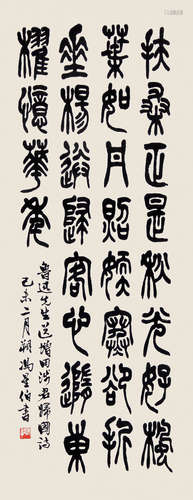 扶桑正是秋光好楓
葉如丹照嫩寒卻折
垂楊送歸客心隨東
櫂憶華年
魯迅先生送增田涉君歸國詩
己未二月朔馮星伯書